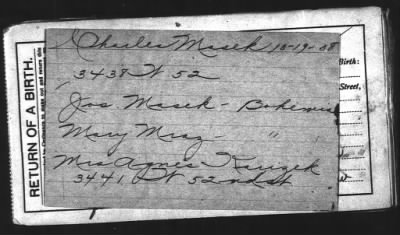 Charles Masek 10-19-08
3438 W 52
Jos. Masek - Bohemia
Mary Mraz - "
Mrs Agnes
3441 W 52nd st
RETURN OF A BIRTH.
Birth:
Street,